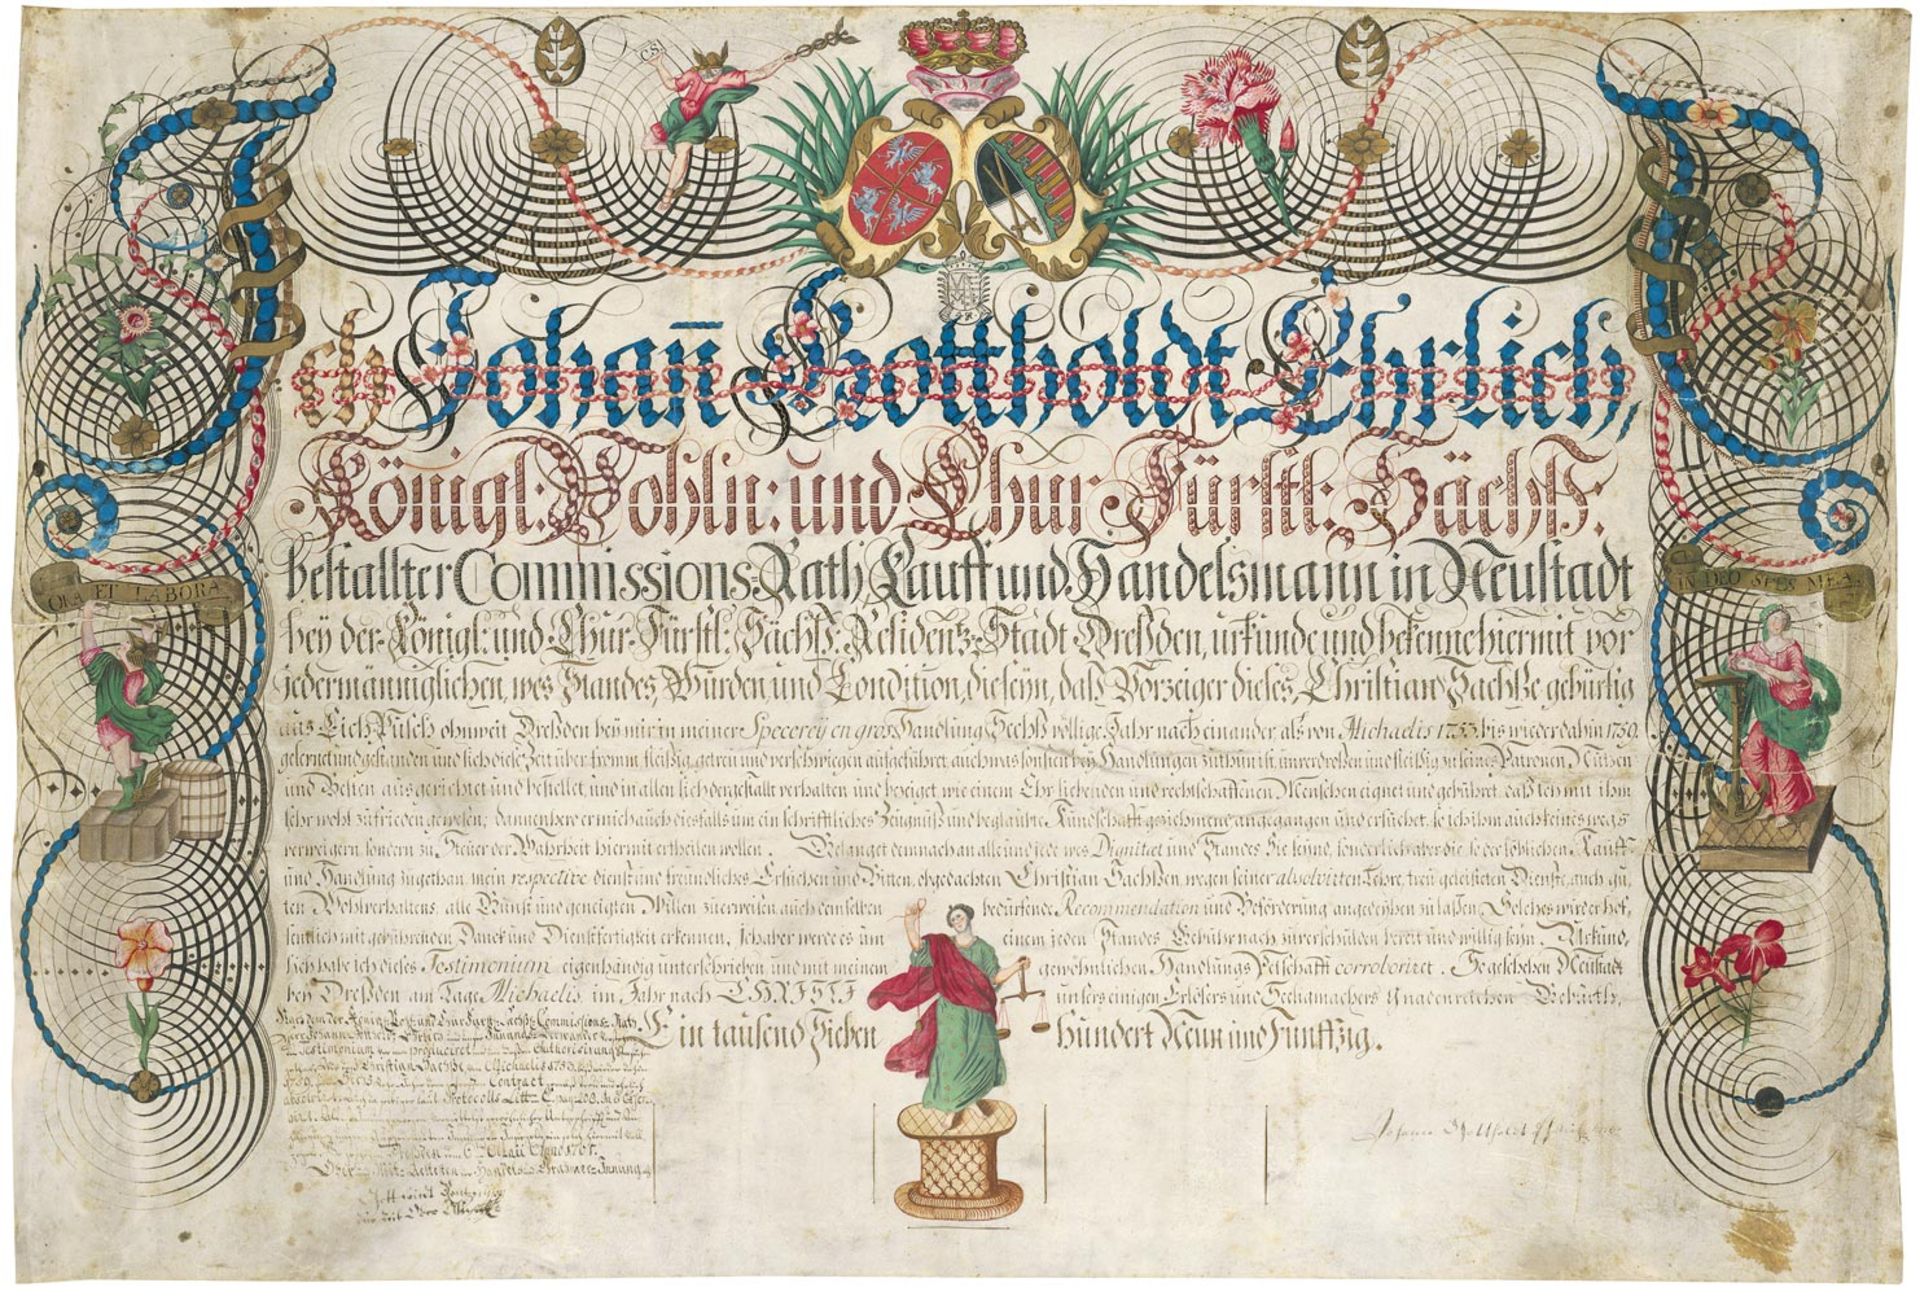 C.S.
Ich Johañ Gottholdt Ehrlich,
Königl: Pohln: und Chur Fürstl: Sächß:
bestallter Commissions-Rath, Kauff und Handelsmann in Neustadt
bey der Königl: und Chur-Fürstl: Sächß: Residentz-Stadt Dreßden, urkunde und bekenne hiermit vor
jedermänniglichen, wes Standes, Würden und Condition, die seyn, daß Vorzeiger dieses, Christian Sachße gebürtig
aus Eich Pusch ohnweit Dreßden bey mir in meiner Specerey en gros Handlung Sechß völlige Jahr nach einander, als von Michaelis 1753. bis wieder dahin 1759.
gelernet und gestanden und sich diese Zeit über fromm fleißig, getreu und verschwiegen aufgeführet, auch was sonsten bey Handlungen zu thun ist, unverdroßen und fleißig zu seines Patronen, Nutzen
und Besten ausgerichtet und bestellet, und in allen sich dergestallt verhalten und bezeiget wie einem Ehr liebenden und rechtschaffenen Menschen eignet und gebühret, daß ich mit ihm
sehr wohl zufrieden gewesen; dannenhero er mich auch diesfalls um ein schrifftliches Zeugnüß und beglaubte Kundschafft geziemend angegangen und ersuchet, so ich ihm auch keines wegs
verweigern, sondern zu Steuer der Wahrheit hiermit ertheilen wollen. Gelanget demnach an alle und jede, wes Dignitæt und Standes Sie seynd, sonderlich aber die, so der löblichen Kauff-
und Handlung zugethan, mein respective dienst und freundliches Ersuchen und Bitten, obgedachten Christian Sachßen, wegen seiner absolvirten Lehre, treu geleisteten Dienste, auch gu-
ten Wohlverhaltens, alle Gunst und geneigten Willen zu erweisen, auch demselben bedürfende Recommendation und Beförderung angedeyhen zu laßen. Solches wird er hof-
fentlich mit gebührenden Danck und Dienstfertigkeit erkennen, Ich aber werde es um einem jeden Standes Gebühr nach zu verschulden bereit und willig seyn. Urkund-
lich habe ich dieses Testimonium eigenhändig unterschrieben, und mit meinem gewöhnlichen Handlungs Petschafft corroboriret. So geschehen Neustadt
bey Dreßden am Tage Michaelis, im Jahr nach CHRISTI unsers einigen Erlösers und Seeligmachers Gnadenreichen Gebürth,
Ein tausend Sieben hundert Neun und Funffzig.
ORA ET LABORA
IN DEO SPES MEA.
Nachdem der Königl. Pohl. und Churfürstl. Sächß. Commissions-Rath
Herr Johann Gotthold Ehrlich
Testimonium produciret
Christian Sachße, von Michaelis 1753. biß wieder dahin
1759. Contract
absolviret laut Protocolls Litt. C. pag. 208.
Dreßden 1761.
Handels Innung
Johann Gotthold Ehrlich